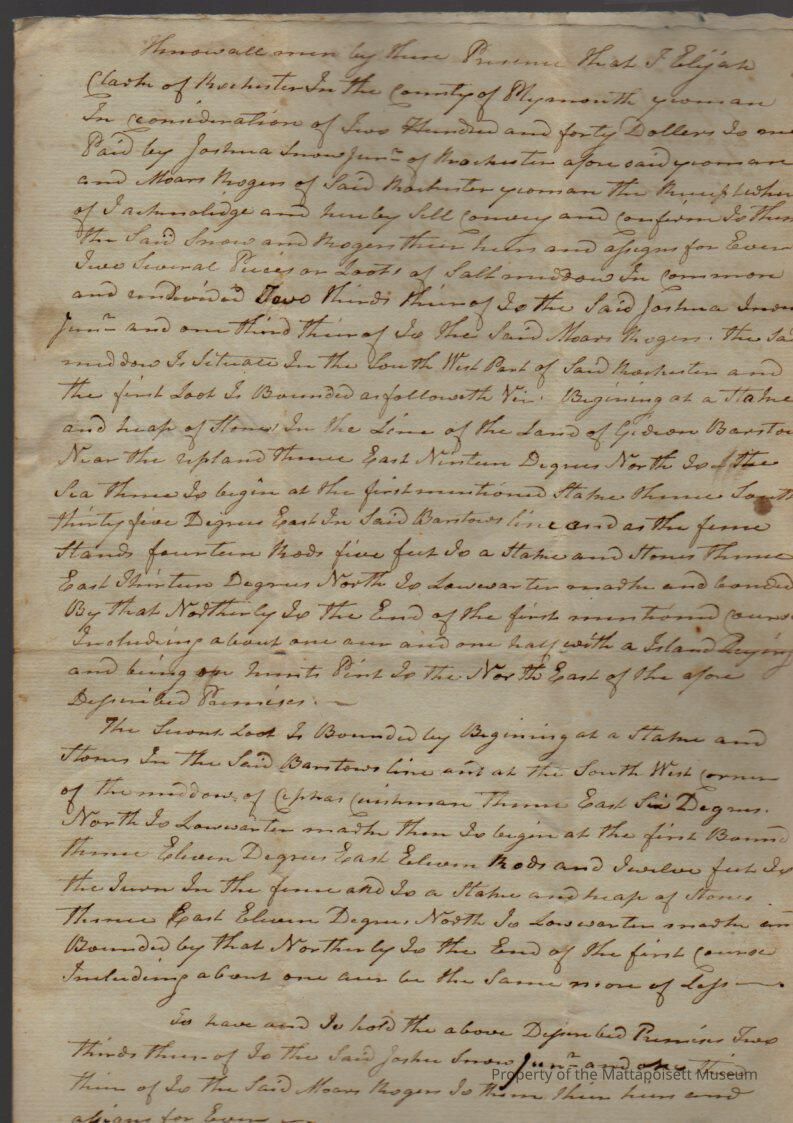 Know all men by these Presence that I Elijah
Clark of Rochester In the County of Plymouth yeoman
In Consideration of Two Hundred and forty Dollars To me
Paid by Joshua Snow Junr of Rochester afore said yeoman
and Moars Rogers of Said Rochester yeoman the Receipt wher
of I acknolidge and hereby Sell Convey and Confirm To them
the Said Snow and Rogers their heirs and assigns for Ever
Two Several Pieces or Loots of Salt meddow In Common
and undivided Two thirds thereof To the Said Joshua Snow
Junr and one third thereof To the Said Moars Rogers. the Sa
meddow Is Situate In the South West Part of Said Rochester and
the first Loot Is Bounded as followeth Viz: Begining at a Stake
and heap of Stones In the Line of the Land of Gideon Barstow
Near the upland thence East Ninteen Degrees North To the
Sea thence To begin at the first mentioned Stake thence South
thirty five Degrees East In Said Barstows line and as the fence
Stands fourteen Rods five feet To a Stake and Stones thence
East Thirteen Degrees North To Lowwarter marke and bounded
By that Northerly To the End of the first mentioned Course
Including about one acer and one half with a Island Laying
and being on hunts Pint To the North East of the afore
Described Premises. —
The Secont Loot Is Bounded by Begining at a Stake and
Stones In the Said Barstows line and at the South West Corner
of the meddow of Cephas Cushman thence East Six Degres.
North To Lowwarter marke then To begin at the first Bound
thence Eleven Degrees East Eleven Rods and Twelve feet To
the Turn In the fence and To a Stake and heap of Stones
thence East Eleven Degrees North To Lowwarter marke an
Bounded by that Northerly To the End of the first Course
Including about one acer be the Same more of Less —
To have and To hold the above Described Premises Two
thirds there of To the Said Joshua Snow Junr and one thir
there of To the Said Moars Rogers To them their heirs and
assigns for Ever
Property of the Mattapoisett Museum